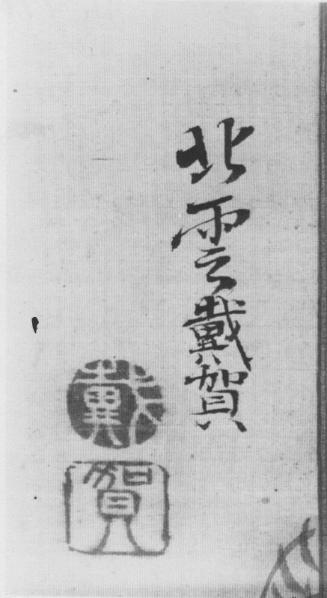 北雲戴賀
戴
賀